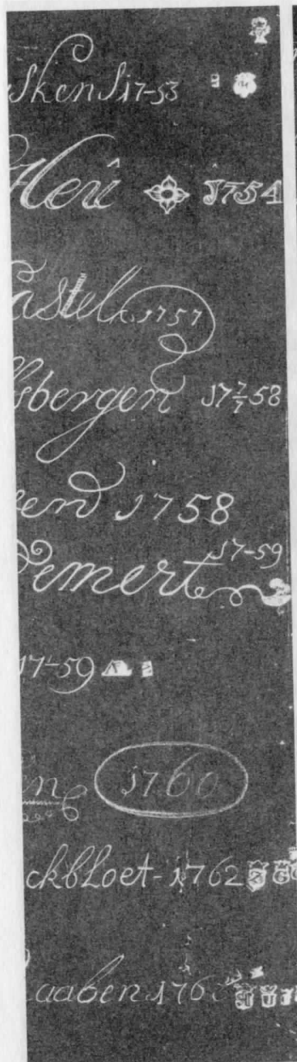 skens 17-53
Heû 1754
astel 1757
sbergen 17 7/7 58
end 1758
emert 17-59
17-59
en 1760
ckbloet- 1762
aaben 176